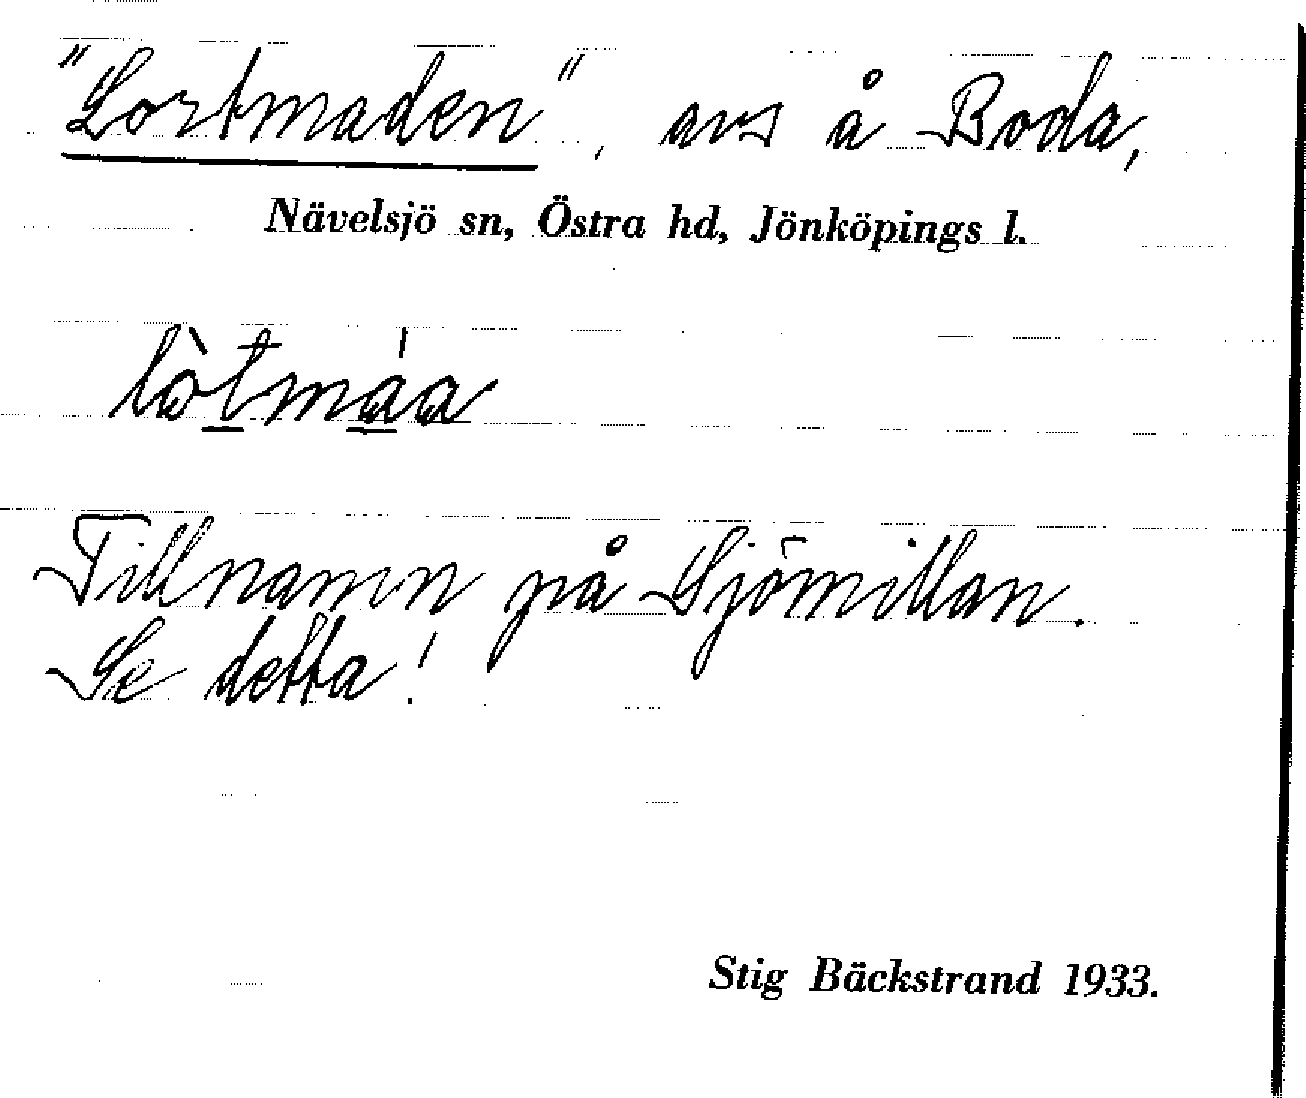 "Lortmaden", avs å Boda,
Nävelsjö sn, Östra hd, Jönköpings l.
lòtmáa
Tillnamn på Sjömillan.
Se detta!
Stig Bäckstrand 1933.